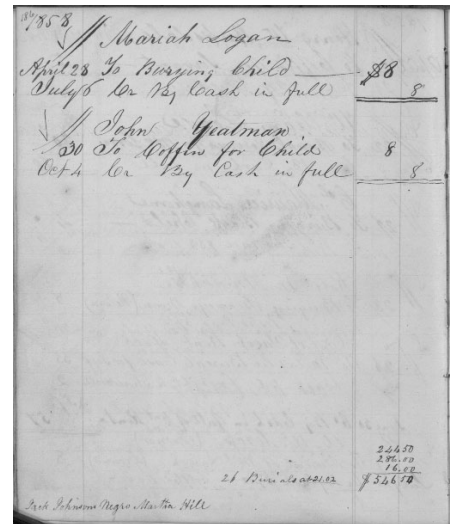 1858
Mariah Logan
April 28 To Burying Child $8
July 6 Cr By Cash in full 8
John Yeatman
30 To Coffin for Child 8
Oct 4 Cr By Cash in full 8
244 50
286.00
16.00
26 Burials at 21.02 $546 50
Johnsons Negro Martha Hill